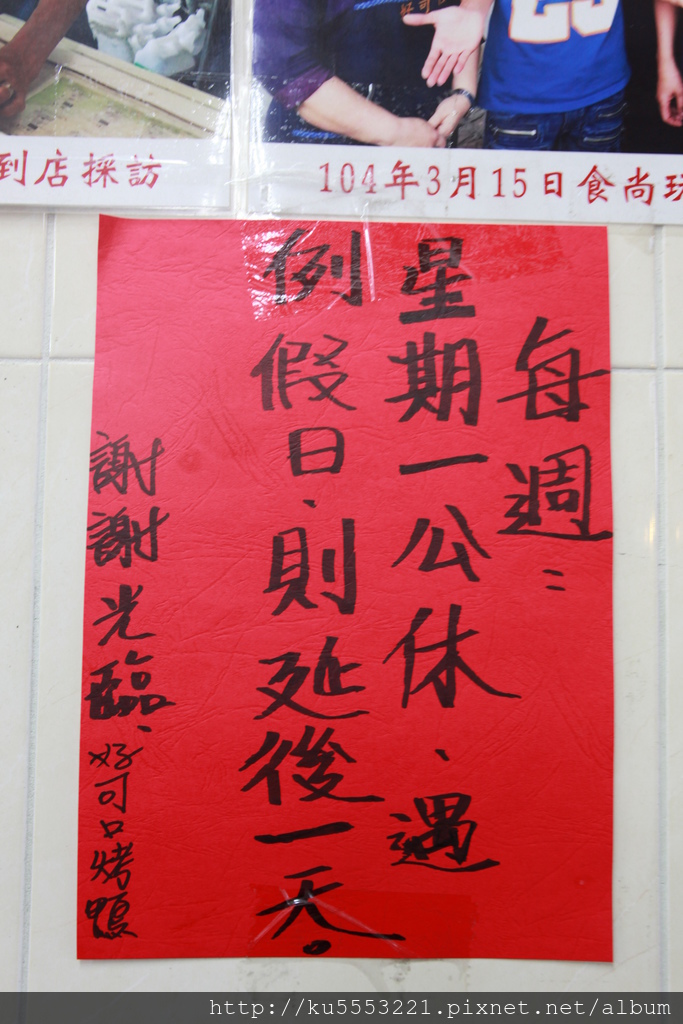 好可
到店採訪
104年3月15日食尚玩
每週：
星期一公休、遇
例假日、則延後一天。
謝謝光臨、好可口烤鴨
http://ku5553221.pixnet.net/album